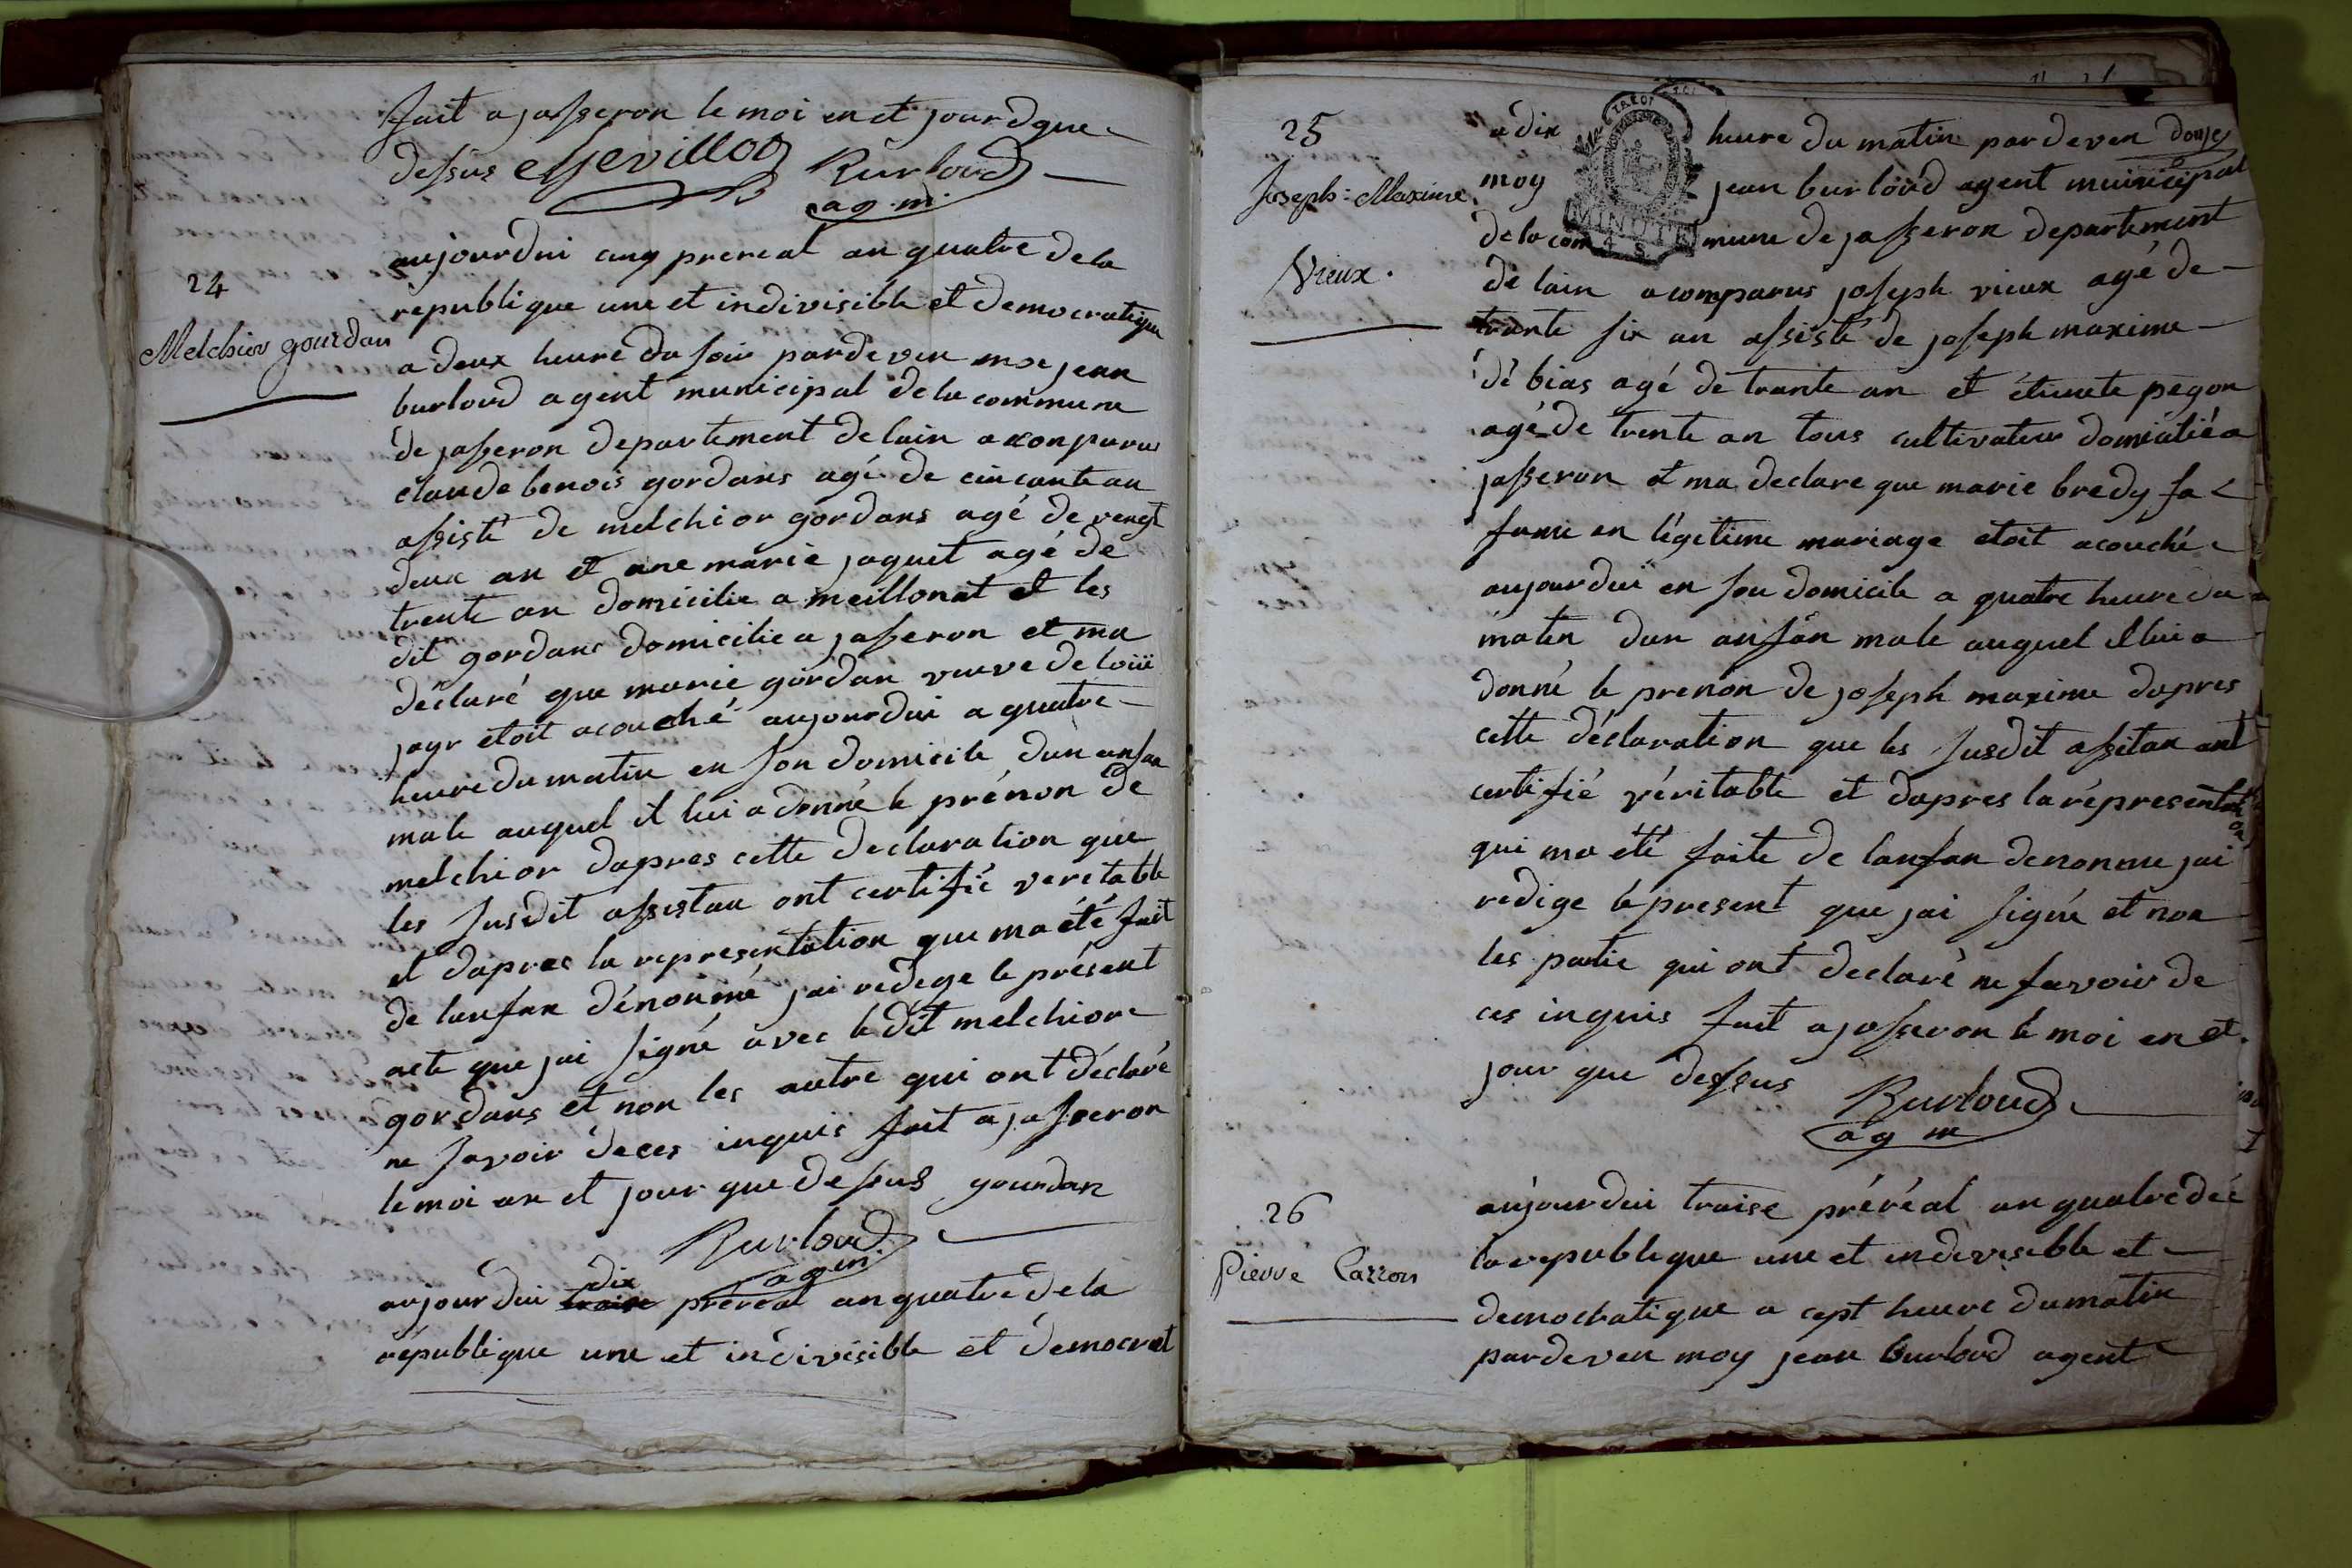 fait a jasseron le moi en et jour dque
dessus Chevillon Burloud
ag. m.
24
Melchior gourdan
aujourdui cinq prereal an quatre de la
republique une et indivisible et democratique
a deux heure du soir pardeven moe jean
burloud agent municipal de la commune
de jasseron departement de lain a conparus
claude benois gordans agé de cincante an
assisté de melchior gordans agé de vengt
deux an et ane marie jaquet agé de
trente an domicilie a meillonat et les
dit gordans domicilie a jasseron et ma
déclaré que marie gordan veuve de loüi
jayr étoit acouché aujourdui a quatre
heure du matin en son domicile dun anfan
male auquel il lui a donné le prénon de
melchior dapres cette declaration que
les susdit assistan ont certifié veritable
et dapres la representation que ma été fait
de lanfan dénonmé jai redege le présent
acte que jai signé avec le dit melchior
gordans et non les autre qui ont déclaré
ne savoir de ces inquis fait a jasseron
le moi an et jour que dessus gourdan
Burloud
ag m
aujourdui traise dix prereal an quatre de la
republique une et indivisible et democrat
25
Joseph-Maxime
Vieux.
a dix heure du matin pardeven
moy jean burloud agent municipal
de la commune de jasseron departement
de lain a comparus joseph vieux agé de
trante six an assisté de joseph maxime
dé bias agé de trante an et étinete pegon
agé de trente an tous cultivateur domicilié a
jasseron et ma declare que marie bredy sa
fame en légitime mariage étoit acouché
aujourdui en son domicile a quatre heure du
matin dun anfan male auquel il lui a
donné le prenon de joseph maxime dapres
cette déclaration que les susdit assitan ont
certifié véritable et dapres la répresentation
qui ma été faite de lanfan denonme jai
redige le present que jai signé et non
les partie qui ont declaré ne savoir de
ces inquis fait a jasseron le moi en et
jour que dessus Burloud
ag m
26
Pierre Carron
aujourdui traise préréal an quatre de
la republique une et indevisible et
democratique a cept heure du matin
pardeven moy jean burloud agent
MINUTE